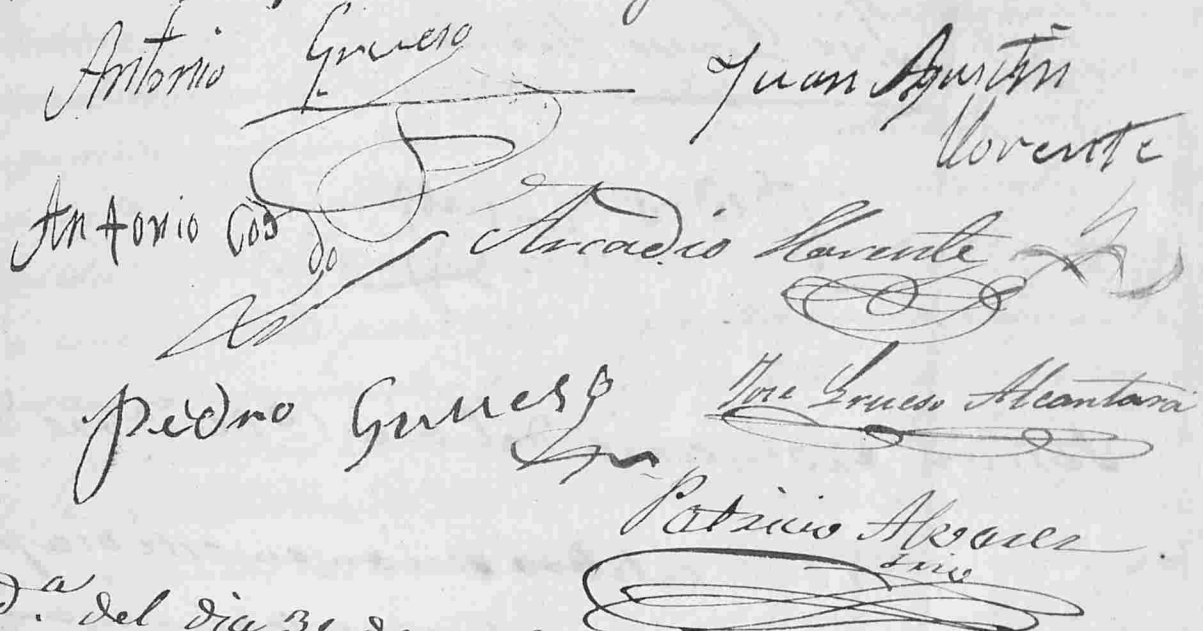 Antonio Grueso
Juan Agustin
Llorente
Antonio Cos
do
Arcadio Llorente
Pedro Grueso
Jose Grueso Alcantara
Patricio Alvarez
Srio
del dia